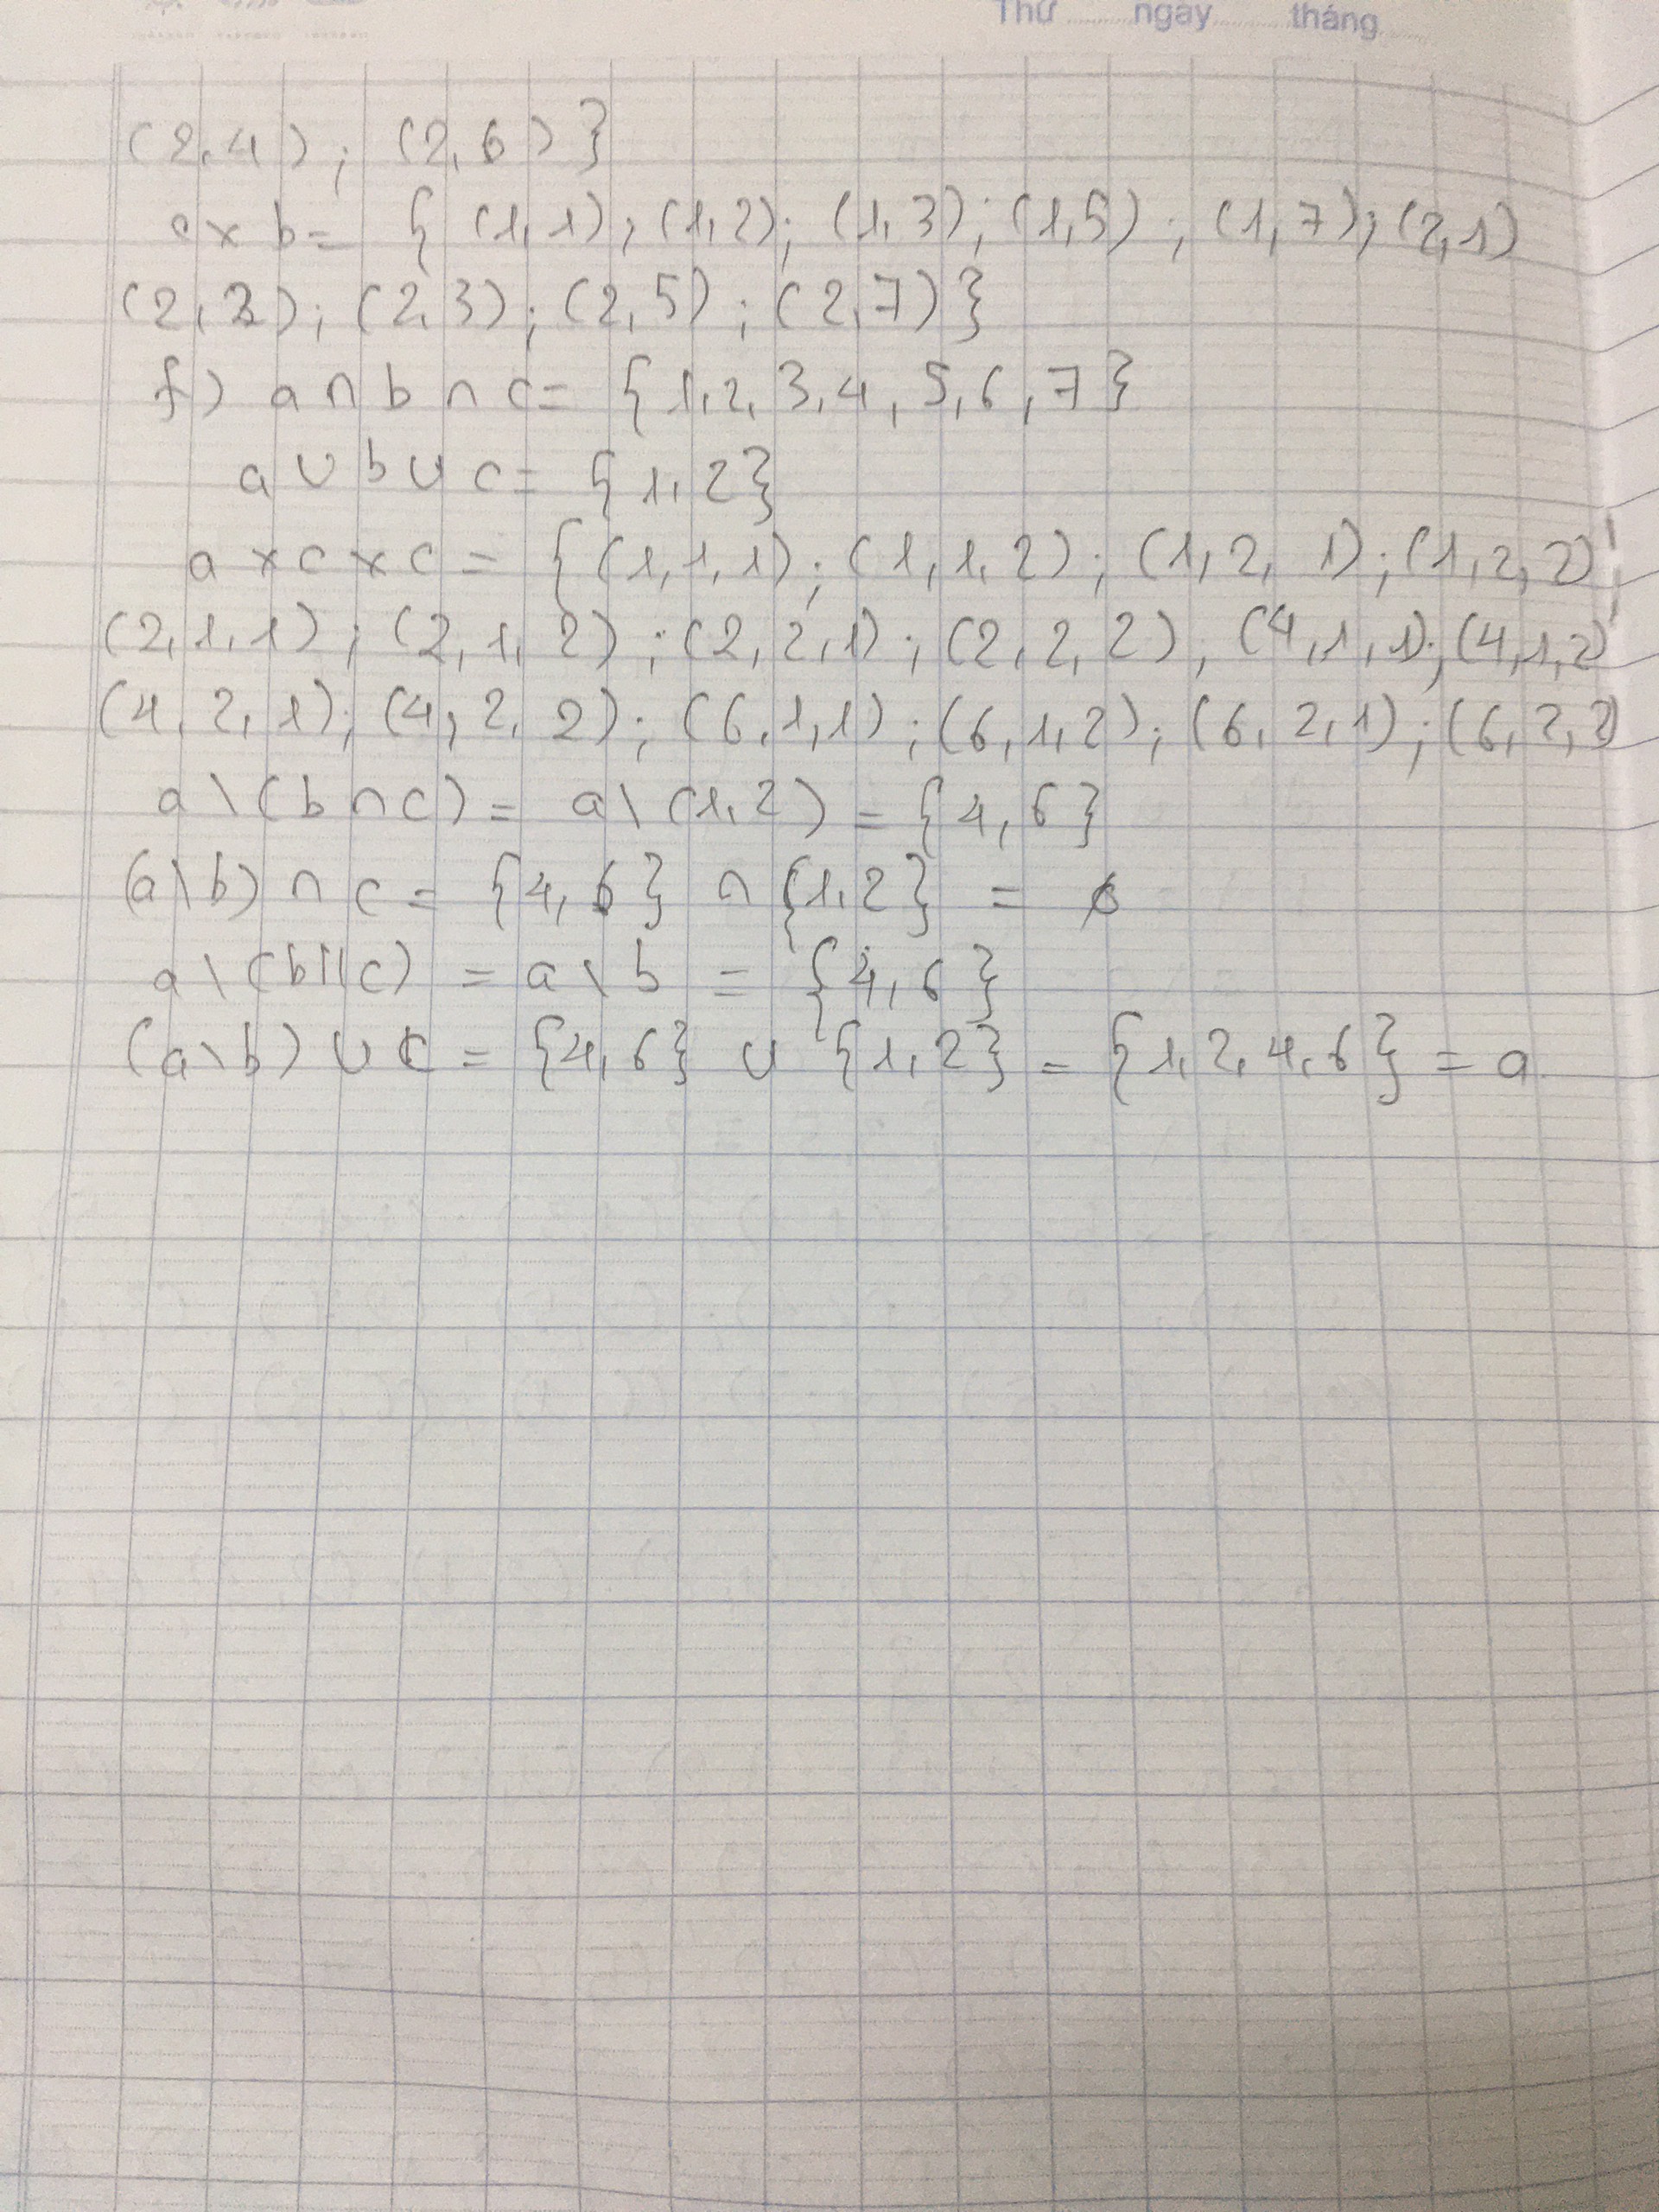 Thứ ngày tháng
(2,4); (2,6)}
c x b = { (1,1); (1,2); (1,3); (1,5); (1,7); (2,1)
(2,2); (2,3); (2,5); (2,7)}
f) a ∩ b ∩ c = {1,2,3,4,5,6,7}
a ∪ b ∪ c = {1,2}
a x c x c = {(1,1,1); (1,1,2); (1,2,1); (1,2,2);
(2,1,1); (2,1,2); (2,2,1); (2,2,2), (4,1,1); (4,1,2)
(4,2,1); (4,2,2); (6,1,1); (6,1,2); (6,2,1); (6,2,2)
a \ (b ∩ c) = a \ (1,2) = {4,6}
(a \ b) ∩ c = {4,6} ∩ {1,2} = ∅
a \ (b c) = a \ b = {4,6}
(a \ b) ∪ c = {4,6} ∪ {1,2} = {1,2,4,6} = a.